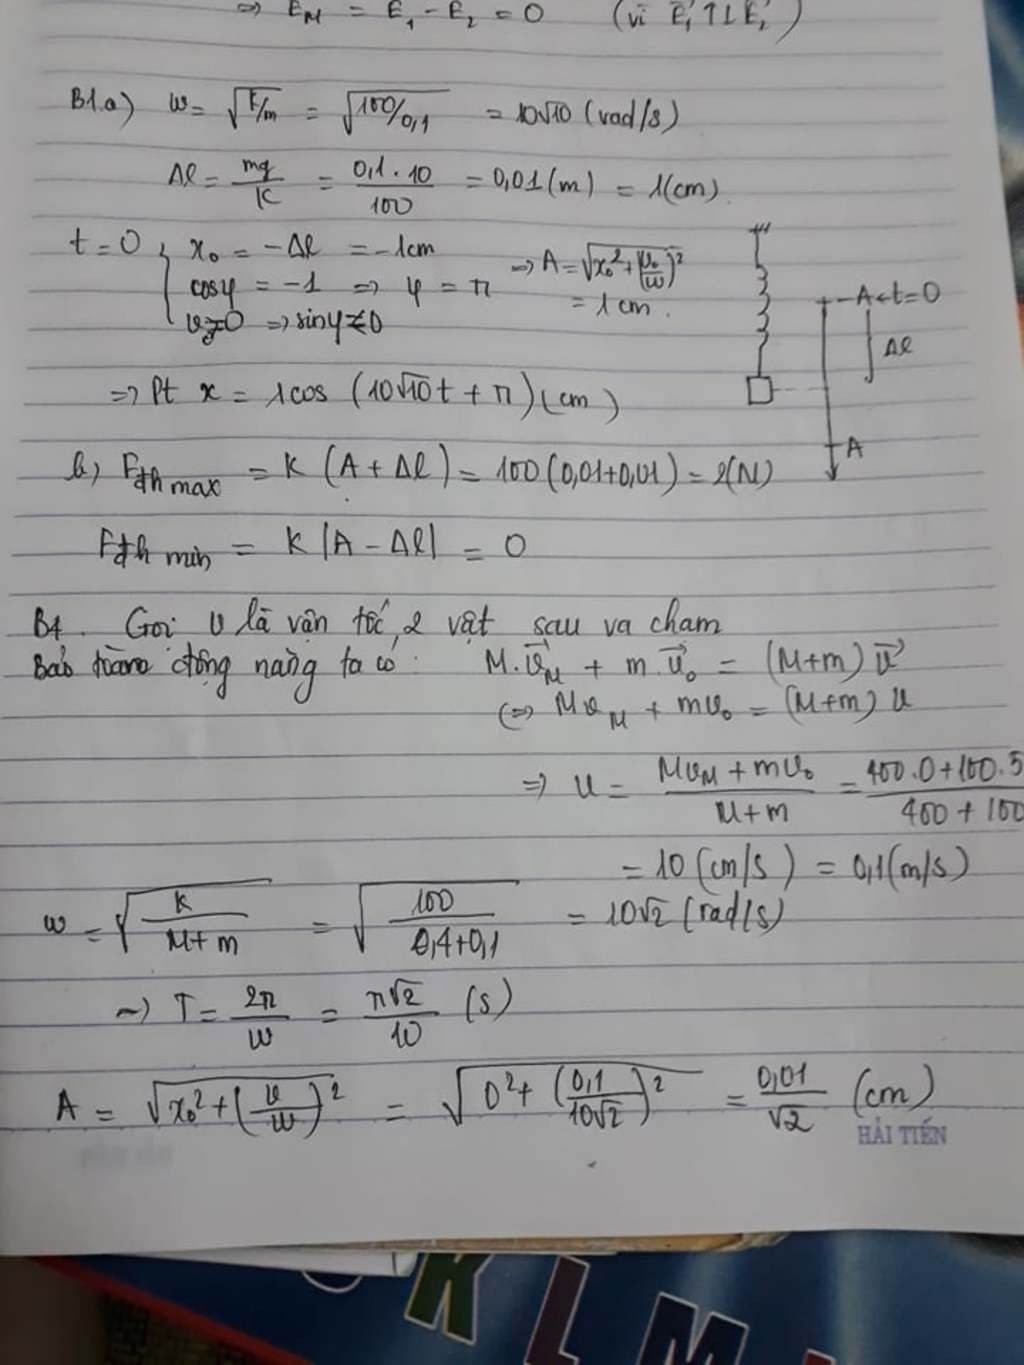 => E_M = E_1 - E_2 = 0 (vì E_1 ↑↓ E_2)
B1.a) ω = √(k/m) = √(100/0,1) = 10√10 (rad/s)
Δl = mg/k = 0,1.10/100 = 0,01(m) = 1(cm)
t = 0 { x₀ = -Δl = -1cm => A = √(x₀² + (v₀/ω)²)
cosφ = -1 => φ = π = 1cm.
=> sinφ
-A <- t=0
Δl
=> Pt x = 1cos (10√10t + π) (cm)
A
b) Fđh max = K (A + Δl) = 100(0,01+0,01) = 2(N)
Fđh min = K |A - Δl| = 0
B4. Gọi v là vận tốc 2 vật sau va chạm
Bảo toàn động năng ta có: M.v⃗_M + m.v⃗₀ = (M+m) v⃗
<=> Mv_M + mv₀ = (M+m) v
=> v = (Mv_M + mv₀)/(M+m) = (400.0+100.5)/(400+100)
= 10 (cm/s) = 0,1(m/s)
ω = √(k/(M+m)) = √(100/(0,4+0,1)) = 10√2 (rad/s)
=> T = 2π/ω = π√2/10 (s)
A = √(x₀² + (v/ω)²) = √(0² + (0,1/10√2)²) = 0,01/√2 (cm)
HẢI TIẾN
K L M